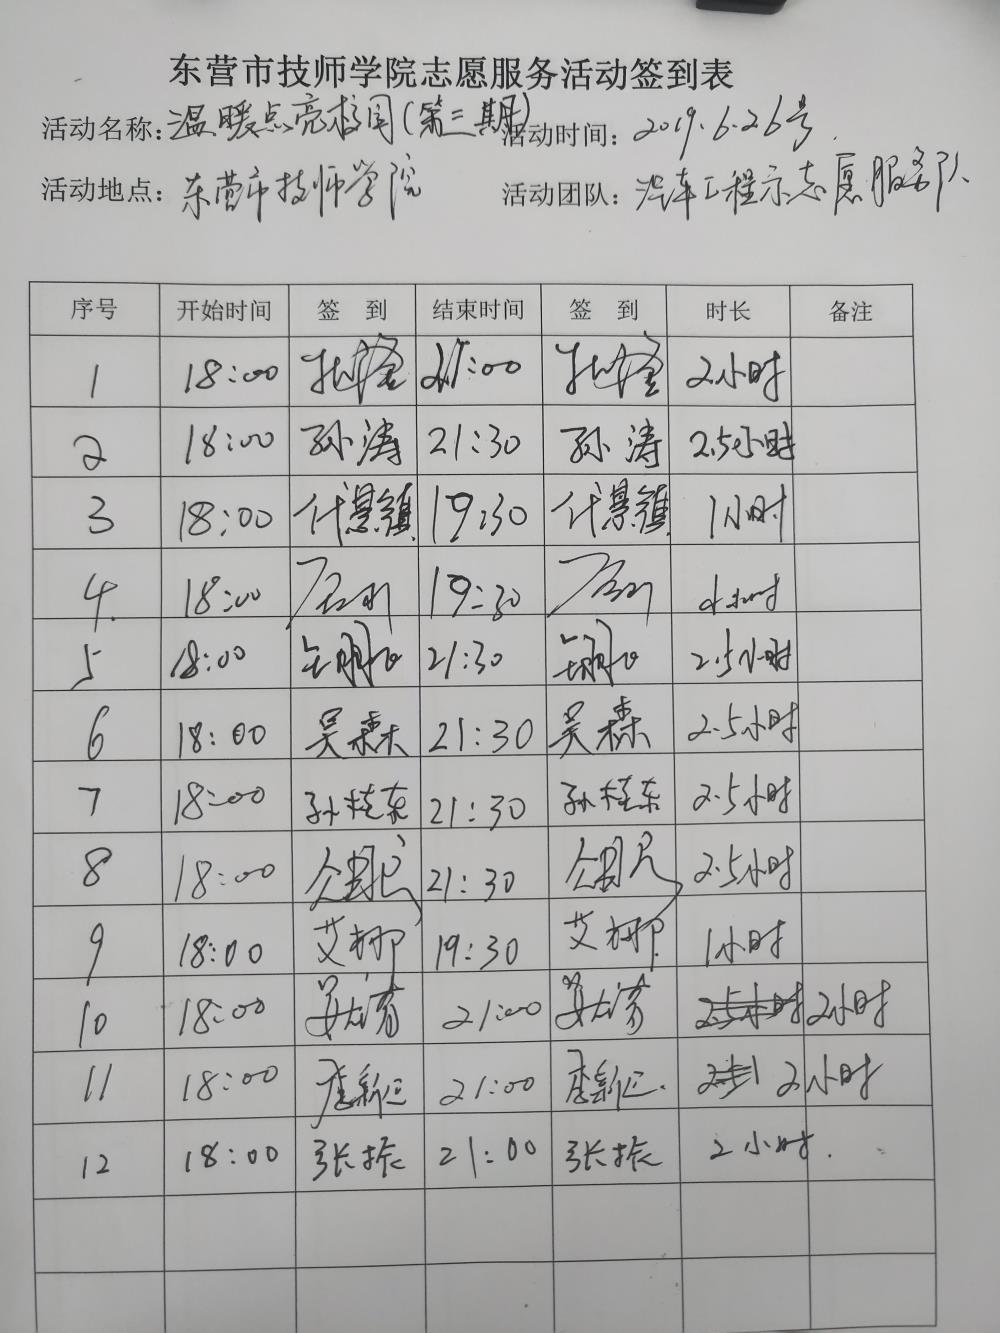 东营市技师学院志愿服务活动签到表
活动名称：温暖点亮校园(第三期) 活动时间：2019.6.26号.
活动地点：东营市技师学院 活动团队：汽车工程系志愿服务队
序号 开始时间 签 到 结束时间 签 到 时长 备注
1 18:00 21:00 2小时
2 18:00 孙涛 21:30 孙涛 2.5小时
3 18:00 代景镇 19:30 代景镇 1小时
4. 18:00 19:30 小时
5 18:00 21:30 2.5小时
6 18:00 吴森 21:30 吴森 2.5小时
7 18:00 孙桂东 21:30 孙桂东 2.5小时
8 18:00 21:30 2.5小时
9 18:00 艾娜 19:30 艾娜 1小时
10 18:00 姜 21:00 姜 2.5小时 2小时
11 18:00 李新 21:00 李新 2小时
12 18:00 张振 21:00 张振 2小时.